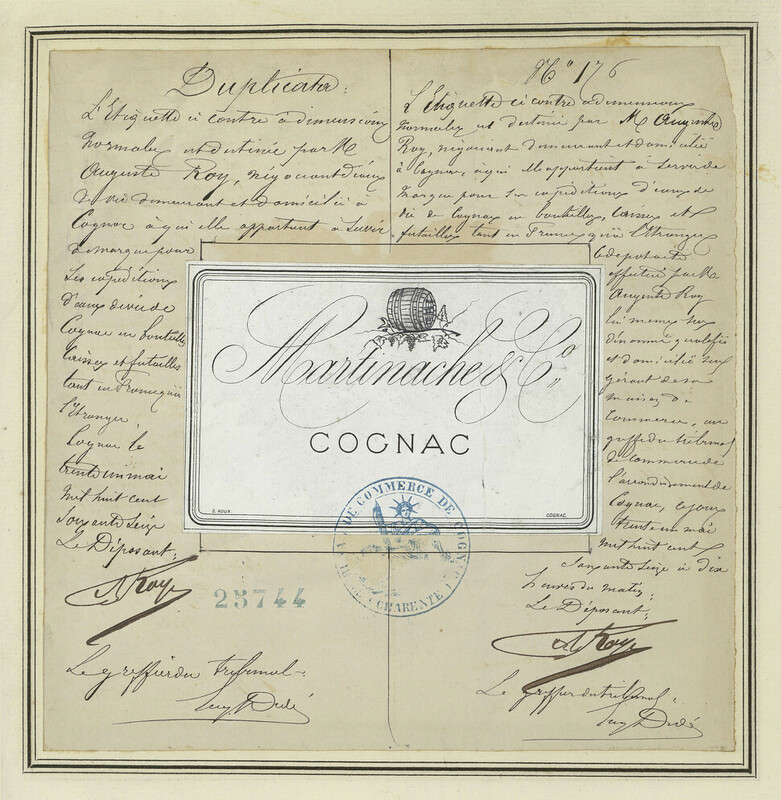 Duplicata:
L'Etiquette ci contre à dimensions
Normales est destinée par M
Auguste Roy, négociant d'eaux
de vie demeurant et domicilié à
Cognac à qui elle appartient à servir
de marque pour
ses expéditions
d'eaux de vie de
Cognac en bouteilles
Caisses et futailles
tant en France qu'à
l'Etranger
Cognac le
trente un mai
Mil huit cent
soixante seize
Le Déposant:
A Roy
25744
Le greffier du tribunal
No 176
L'Etiquette ci contre à dimensions
Normales est destinée par M Auguste
Roy, négociant demeurant et domicilié
à Cognac, à qui elle appartient à servir de
marque pour ses expéditions d'eaux de
vie de Cognac en bouteilles, caisses et
futailles tant en France qu'à l'Etranger
Le dépôt a été
effectué par M
Auguste Roy
lui même sus
dénommé qualifié
et domicilié sus
gérant de sa
maison de
Commerce, au
greffe du tribunal
de commerce de
l'arrondissement de
Cognac, ce jour
trente un mai
Mil huit cent
soixante seize à dix
heures du matin,
Le Déposant:
A Roy
Le greffier du tribunal
Martinache & Co
COGNAC
E. ROUX.
COGNAC.
DE COMMERCE DE COGNAC
CHARENTE